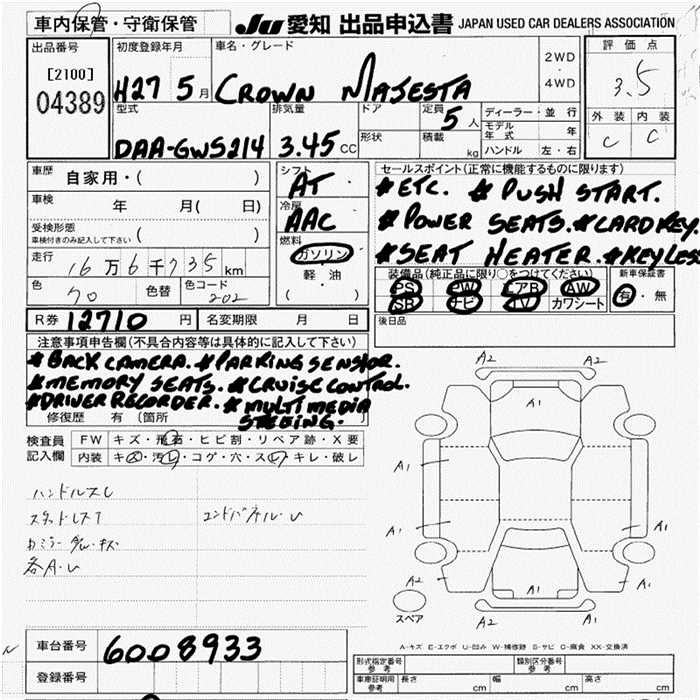 車内保管・守衛保管
JU 愛知 出品申込書 JAPAN USED CAR DEALERS ASSOCIATION
出品番号 初度登録年月 車名・グレード 2WD 評価点
[2100] H27 5月 CROWN MAJESTA 4WD 3.5
04389
型式 排気量 ドア 定員 5人 ディーラー・並行 外装 内装
モデル年式 年
DAA-GWS214 3.45CC 形状 積載 kg ハンドル 左・右 C C
車歴 自家用・( ) シフト AT セールスポイント(正常に機能するものに限ります)
#ETC. #PUSH START.
車検 年 月(日) 冷房 AAC #POWER SEATS. #CARD KEY.
受検形態 車検付きのみ記入して下さい ( ) 燃料 ガソリン #SEAT HEATER. #KEYLES
走行 16万6千735km 軽・油 装備品(純正品に限り○をつけてください) 新車保証書
( ) PS PW エアB AW 有・無
色 70 色替 色コード 202 SR ナビ TV カワシート
R券 12710円 名変期限 月 日 後日品
注意事項申告欄(不具合内容等は具体的に記入して下さい)
#BACK CAMERA. #PARKING SENSOR.
#MEMORY SEATS. #CRUISE CONTROL.
#DRIVER RECORDER. #MULTI MEDIA
STEEING.
修復歴 有 (箇所
検査員記入欄 FW キズ・飛石・ヒビ割・リペア跡・X要
内装 キズ・汚レ・コゲ・穴・スレ・キレ・破レ
ハンドルスレ
各A・U
A2 A2
A1
A1
A1 A1
A2 A1 A1
A2 A2
スペア
A-キズ E-エクボ U-凹み W-補修跡 S-サビ C-腐食 XX-交換済
車台番号 6008933 形式指定番号 参考 類別区分番号 参考
登録番号 車庫証明用 参考 長さ cm 幅 cm 高さ cm